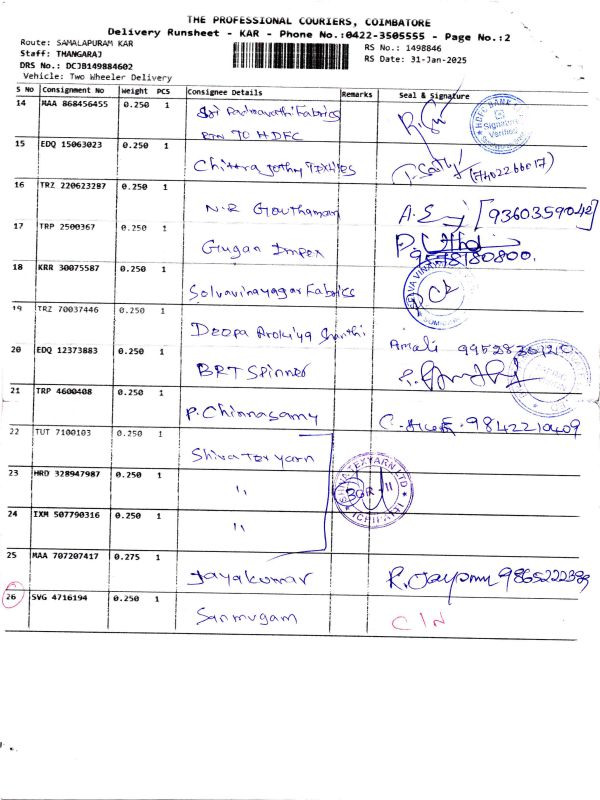 THE PROFESSIONAL COURIERS, COIMBATORE
Delivery Runsheet - KAR - Phone No.:0422-3505555 - Page No.:2
Route: SAMALAPURAM KAR
Staff: THANGARAJ
DRS No.: DCJB149884602
Vehicle: Two Wheeler Delivery
RS No.: 1498846
RS Date: 31-Jan-2025
S No Consignment No Weight PCS Consignee Details Remarks Seal & Signature
14 MAA 868456455 0.250 1 Sri Padmavathi Fabrics
RTN TO HDFC
HDFC BANK
Signature Verified
15 EDQ 15063023 0.250 1 Chittra Jothy Textiles
16 TRZ 220623287 0.250 1 N.R Gouthaman [9360359042]
17 TRP 2500367 0.250 1 Gugan Impex
9578180800.
18 KRR 30075587 0.250 1 Selvavinayagar Fabrics
19 TRZ 70037446 0.250 1 Deepa Arokiya Shanthi Amali
20 EDQ 12373883 0.250 1 BRT Spinner
21 TRP 4600408 0.250 1 P. Chinnasamy 9842210409
22 TUT 7100103 0.250 1 Shiva Tex yarn
SHIVA TEXYARN LTD
23 HRD 328947987 0.250 1 "
24 IXM 507790316 0.250 1 "
25 MAA 707207417 0.275 1 Jayakumar
26 SVG 4716194 0.250 1 Sanmugam C/N